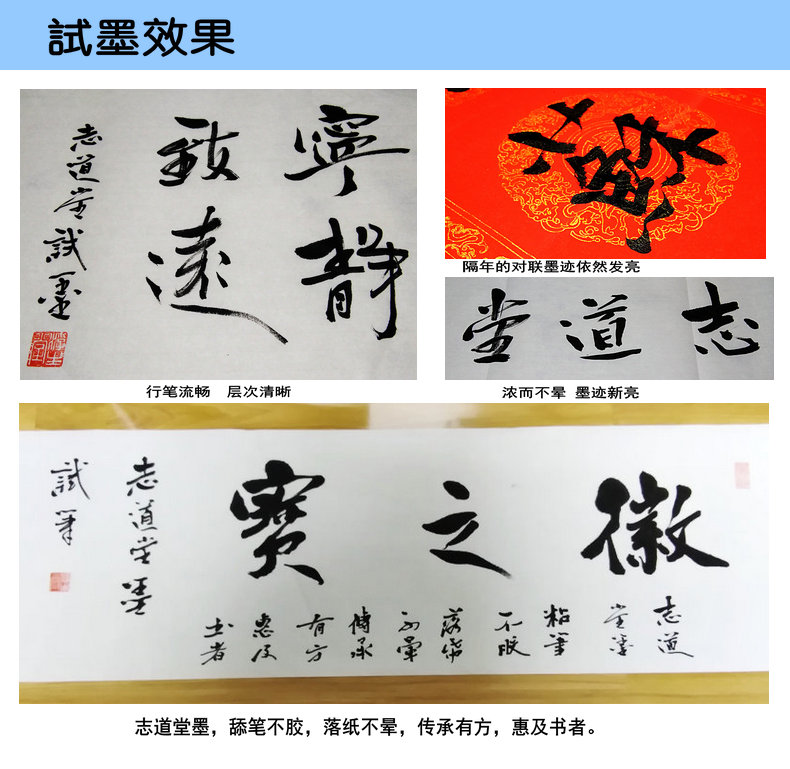 試墨效果
寧靜
致遠
志道堂試墨
行笔流畅 层次清晰
隔年的对联墨迹依然发亮
志道堂
浓而不晕 墨迹新亮
徽之寶
志道
堂墨
粘筆
不胶
落紙
不暈
傳承
有方
惠及
书者
志道堂墨
試筆
志道堂墨，舔笔不胶，落纸不晕，传承有方，惠及书者。